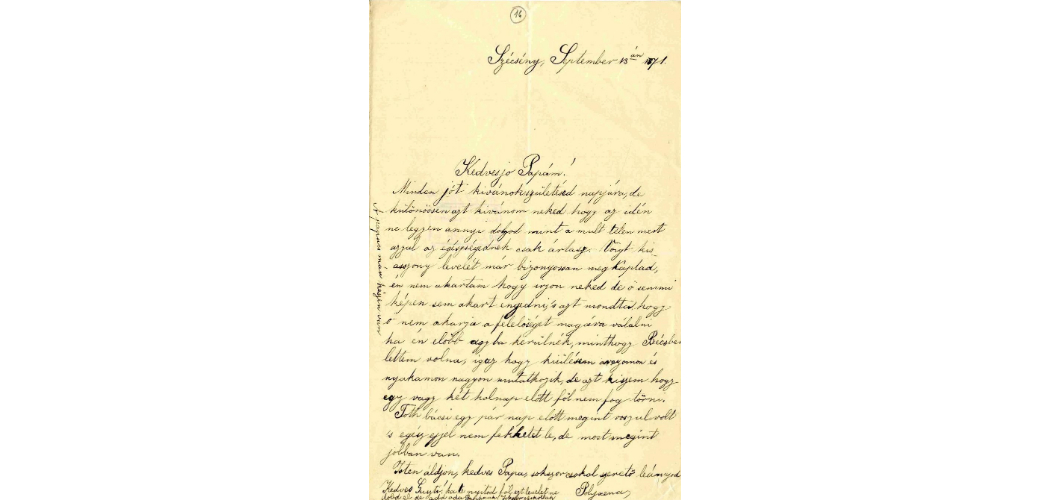 16
Szécsény, September 13 án 1871.
Kedves jo Papám!
Minden jót kivánok születésed napjára, de
különössen azt kivánom neked hogy az idén
ne legyen annyi dolgod mint a mult télen mert
azzal az égésségednek csak ártasz. Voigt kis
asszony levelét már bizonyossan meg kaptad,
én nem akartam hogy irjon neked de ő semmi
képen sem akart engedni, 's azt mondta hogy
ő nem akarja a felelőséget magára válalni
ha én előbb ágyba kerülnék, minthogy Bécsbe
lettem volna, igaz hogy kiülésem arczomon és
nyakamon nagyon mutatkozik, de azt hiszem hogy
egy vagy két holnap előtt föl nem fog törni.
Tóth bácsi egy pár nap előtt megint roszul volt
's egész éjjel nem feküdt le, de most megint
jobban van.
Isten áldjon, kedves Papa, sokszor csokol szerető leányod
Polyxena
Kedves Guszti, ha te nyitod föl ezt levelet ne